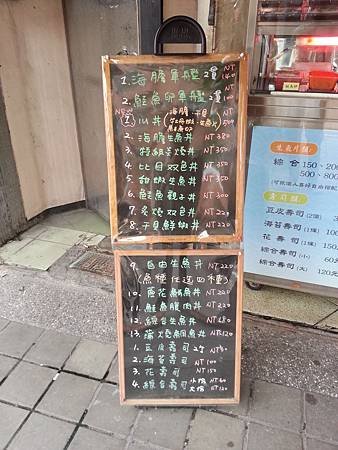 1. 海膽軍艦 2貫 NT 140
2. 鮭魚卵軍艦 2貫 NT 100
丼 (海膽.干貝 NT 500
2. 海膽生魚丼 NT 380
3. 特組炙燒丼 NT 350
4. 比目双色丼 NT 350
5. 甜蝦生魚丼 NT
6. 鮭魚親子丼 NT 300
7. 炙燒双色丼 NT 220
8. 干貝鮮蝦丼 NT 220
9. 自由生魚丼 NT 220
(魚種任選四種)
10. 蔥花鮪魚丼 NT 220
11. 鮭魚腹肉丼 NT
12. 綜合生魚丼 NT 180
13. 蒲燒鯛魚丼 NT 120
1. 豆皮壽司 2個 NT
2. 海苔壽司 NT 100
3. 花壽司 NT 150
4. 綜合壽司 小份 NT 60
大份 NT 120
生魚片類
綜合 150、200
500、800
壽司類
豆皮壽司 (2個)
海苔壽司 (1條)
花壽司 (1條) 150
綜合壽司 (小) 60元
綜合壽司 (大) 120元